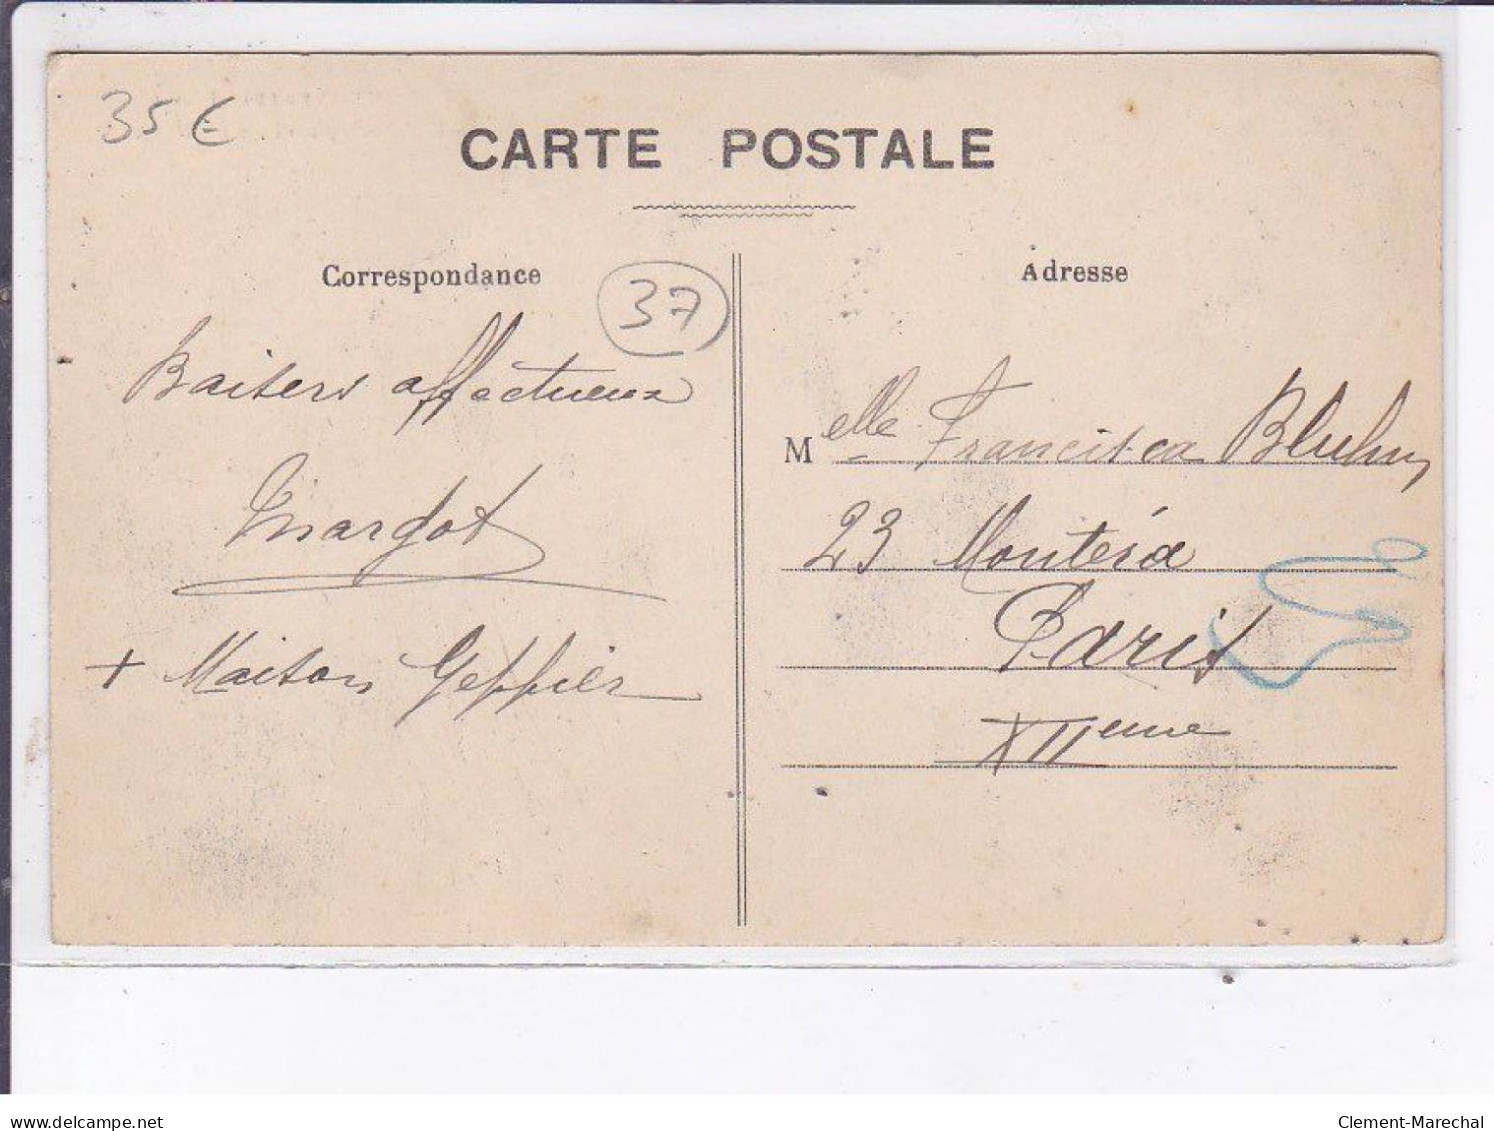 35 €
CARTE POSTALE
Correspondance
37
Baisers affectueux
Margot
+ Maison Geffier
Adresse
Melle Francisca Bluhm
23 Montéra
Paris
XIIeme
delcampe.net
Clement-Marechal